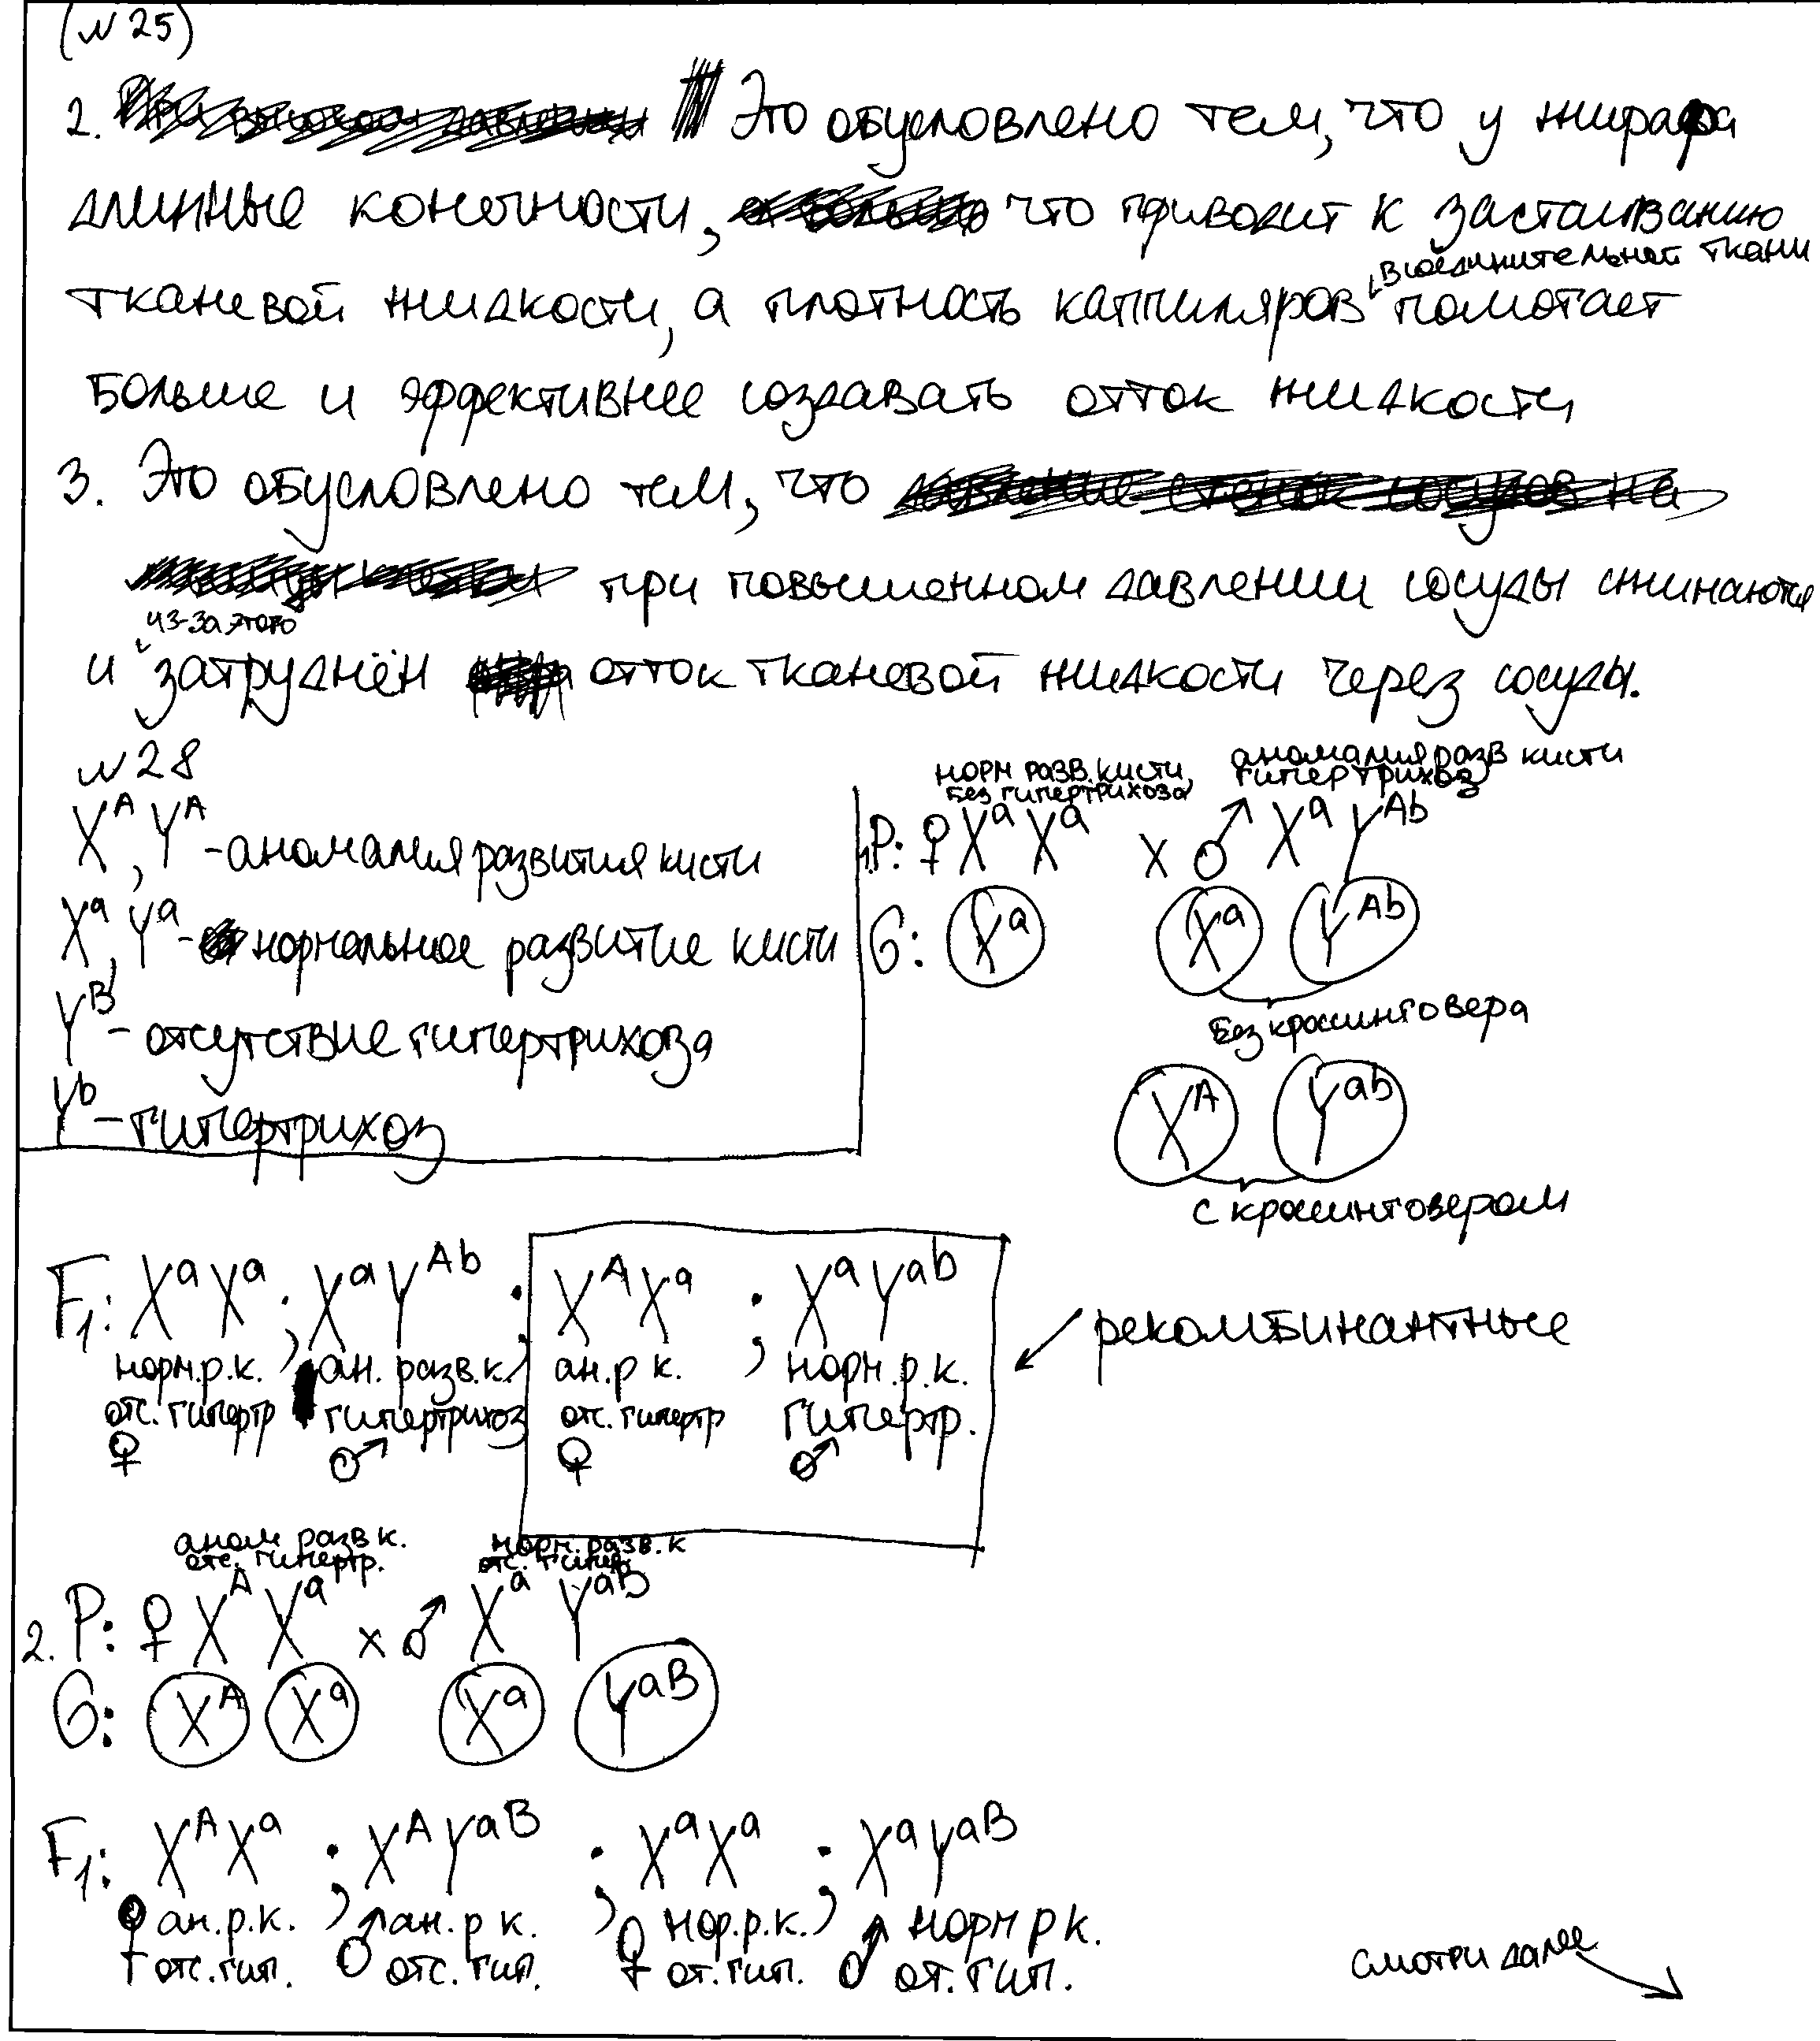 (№25)
2. Это обусловлено тем, что у жирафа
длинные конечности, что приводит к застаиванию
тканевой жидкости, а плотность каппиляров в соединительной ткани помогает
больше и эффективнее создавать отток жидкости
3. Это обусловлено тем, что
при повышенном давлении сосуды сжимаются
и из-за этого затруднён отток тканевой жидкости через сосуды.
№28
X^A, Y^A - аномалия развития кисти
X^a, Y^a - нормальное развитие кисти
Y^B - отсутствие гипертрихоза
Y^b - гипертрихоз
норм разв. кисти, без гипертрихоза
аномалия разв кисти гипертрихоз
1. P: ♀ X^a X^a x ♂ X^a Y^Ab
G: X^a X^a Y^Ab
без кроссинговера
X^A Y^ab
с кроссинговером
F1: X^a X^a ; X^a Y^Ab ; X^A X^a ; X^a Y^ab
рекомбинантные
норм.р.к. ан. разв.к. ан.р к. норм.р.к.
отс. гипертр гипертрихоз отс. гипертр гипертр.
♀ ♂ ♀ ♂
аном разв к. норм. разв. к
отс. гипертр. отс. гипер.
2. P: ♀ X^A X^a x ♂ X^a Y^aB
G: X^A X^a X^a Y^aB
F1: X^A X^a ; X^A Y^aB ; X^a X^a ; X^a Y^aB
♀ ан.р.к. ; ♂ ан.р к. ; ♀ нор.р.к. ; ♂ норм р к.
отс.гип. отс. гип. от.гип. от. гип.
смотри далее